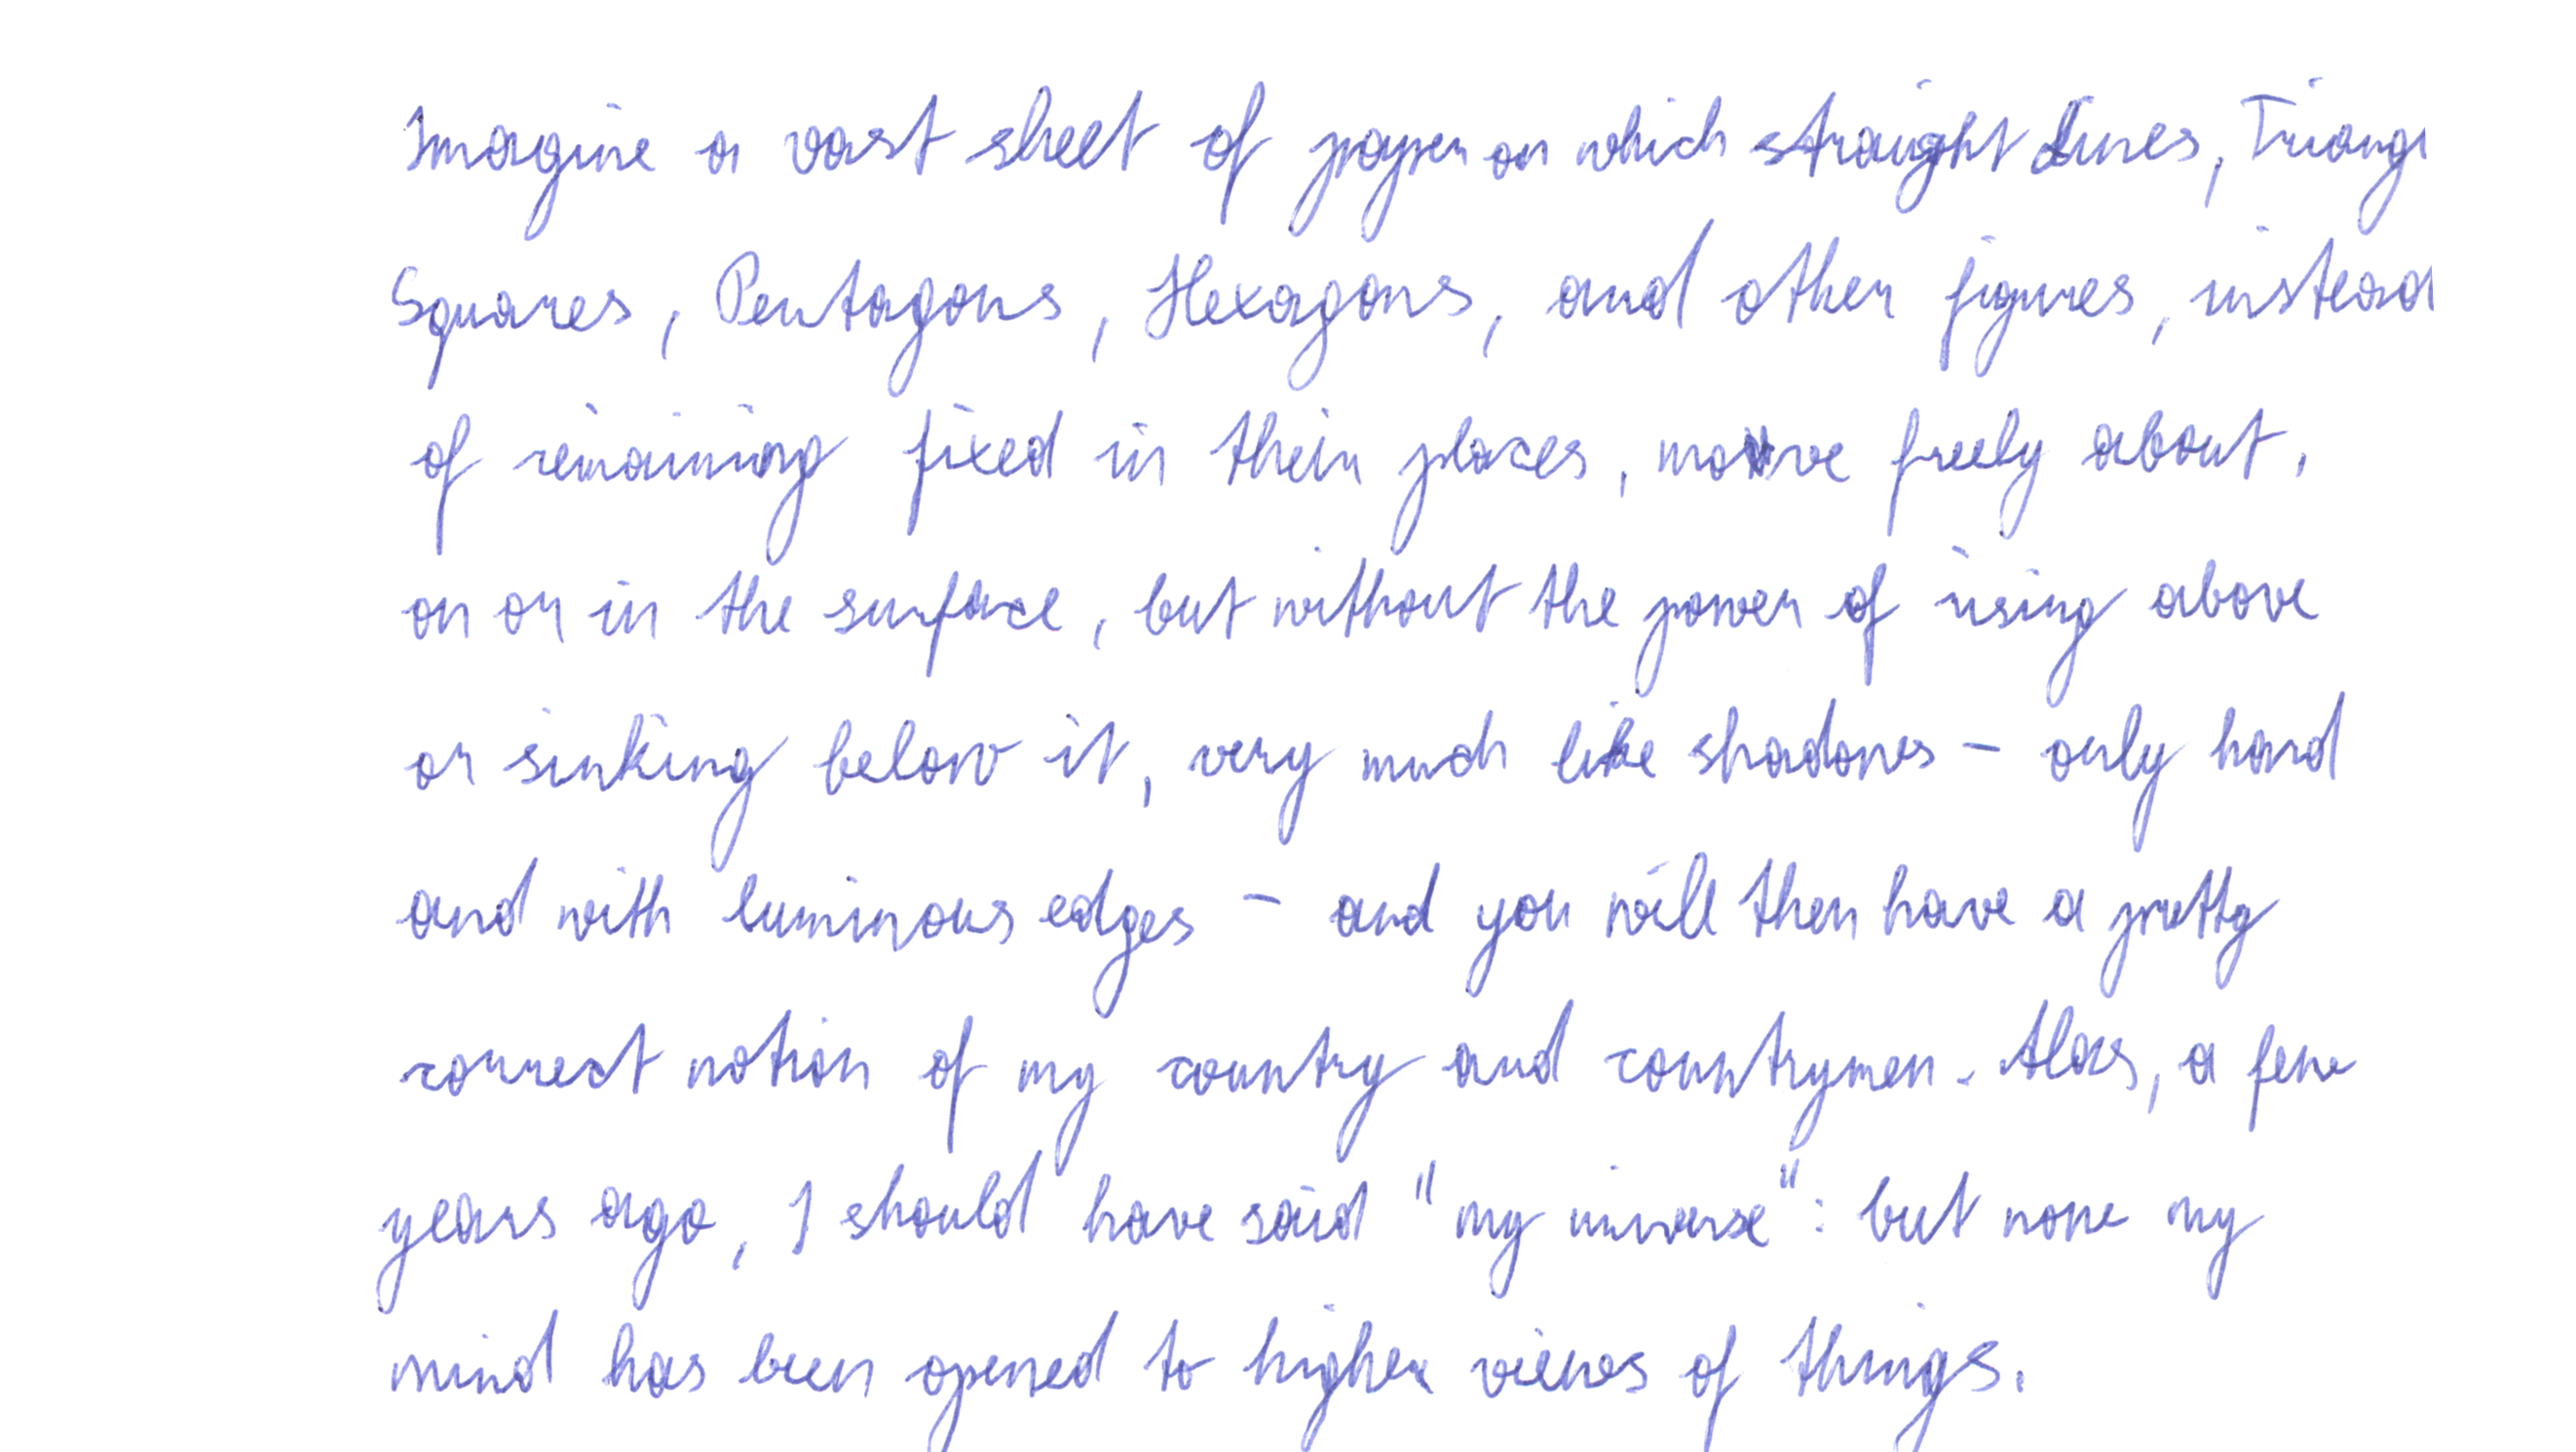 Imagine a vast sheet of paper on which straight Lines, Triang
Squares, Pentagons, Hexagons, and other figures, instead
of remaining fixed in their places, move freely about,
on or in the surface, but without the power of rising above
or sinking below it, very much like shadows - only hard
and with luminous edges - and you will then have a pretty
correct notion of my country and countrymen. Alas, a few
years ago, I should have said "my universe": but now my
mind has been opened to higher views of things.